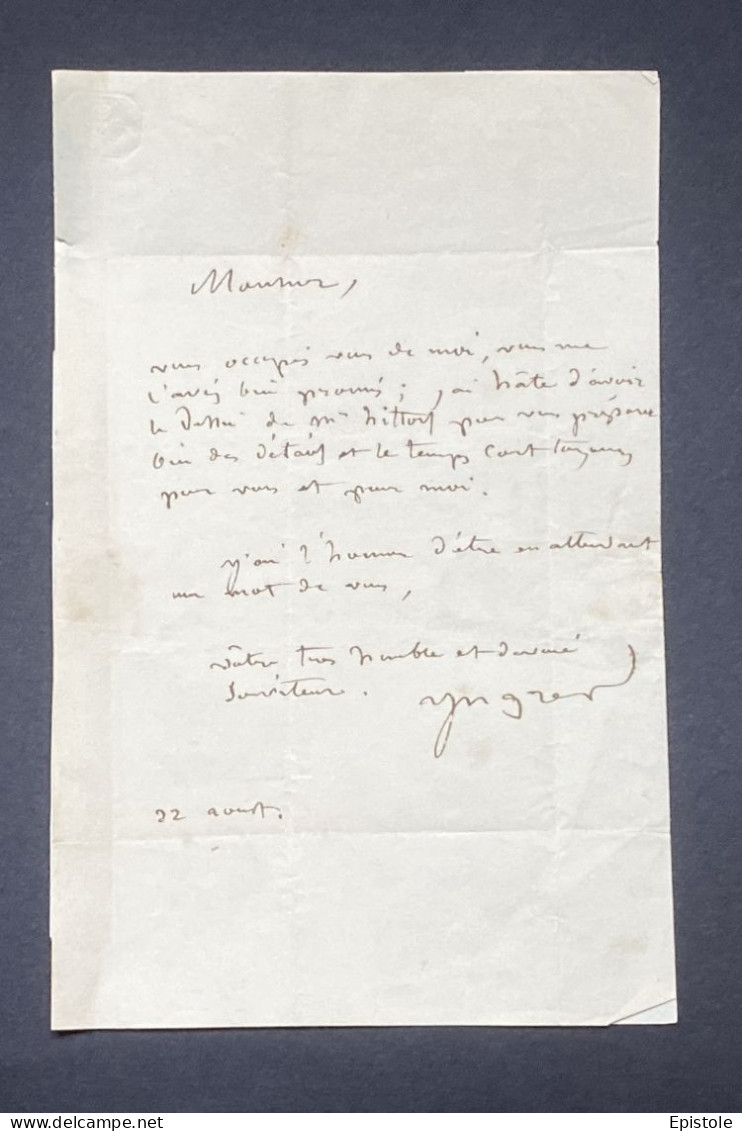 Monsieur,
vous occupés vous de moi, vous me
l'avés bien promis; j'ai hâte d'avoir
le Dessin de Mr hittorf pour vous préparer
bien des détails et le temps court toujours
pour vous et pour moi.
j'ai l'honneur d'être en attendant
un mot de vous,
vôtre tres humble et devoué
Serviteur.
Ingres
22 aoust.
delcampe.net
Epistole